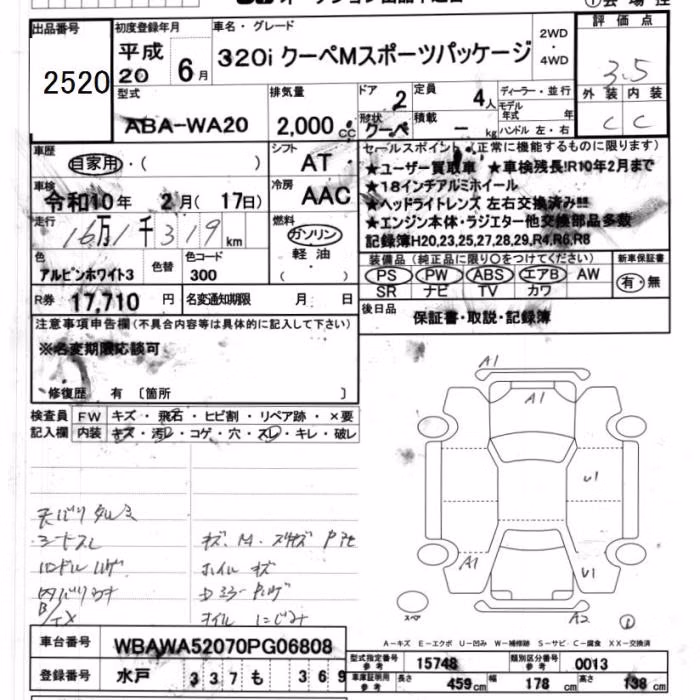 出品番号
2520
初度登録年月
平成
20
6月
車名・グレード
320i クーペMスポーツパッケージ
2WD
・
4WD
評価点
3.5
外装 内装
C C
型式
ABA-WA20
排気量
2,000 cc
ドア
2
定員
4人
形状
クーペ
積載
ー kg
ディーラー・並行
モデル年式 年
ハンドル 左・右
車歴
自家用・( )
シフト
AT
車検
令和10年 2月( 17日)
冷房
AAC
走行
16万1千319 km
燃料
ガソリン
軽油
( )
色
アルピンホワイト3
色替
色コード
300
R券 17,710 円
名変通知期限 月 日
セールスポイント(正常に機能するものに限ります)
★ユーザー買取車 ★車検残長!R10年2月まで
★18インチアルミホイール
★ヘッドライトレンズ 左右交換済み!!!
★エンジン本体・ラジエター他交換部品多数
記録簿H20,23,25,27,28,29,R4,R6,R8
装備品(純正品に限り○をつけてください)
PS PW ABS エアB AW
SR ナビ TV カワ
新車保証書
有・無
後日品
保証書・取説・記録簿
注意事項申告欄(不具合内容等は具体的に記入して下さい)
※名変期限応談可
修復歴 有 〔箇所 〕
検査員
記入欄
FW キズ・飛石・ヒビ割・リペア跡・×要
内装 キズ・汚レ・コゲ・穴・スレ・キレ・破レ
天バリタルミ
シートスレ
ハンドルハゲ
ホイルキズ
オイルにじみ
A1
A1
U1
A1
U1
A2
スペア
A-キズ E-エクボ U-凹み W-補修跡 S-サビ C-腐食 XX-交換済
車台番号 WBAWA52070PG06808
登録番号 水戸 337 も 369
型式指定番号
参考
15748
類別区分番号
参考
0013
車庫証明用
参考
長さ 459cm 幅 178cm 高さ 138cm